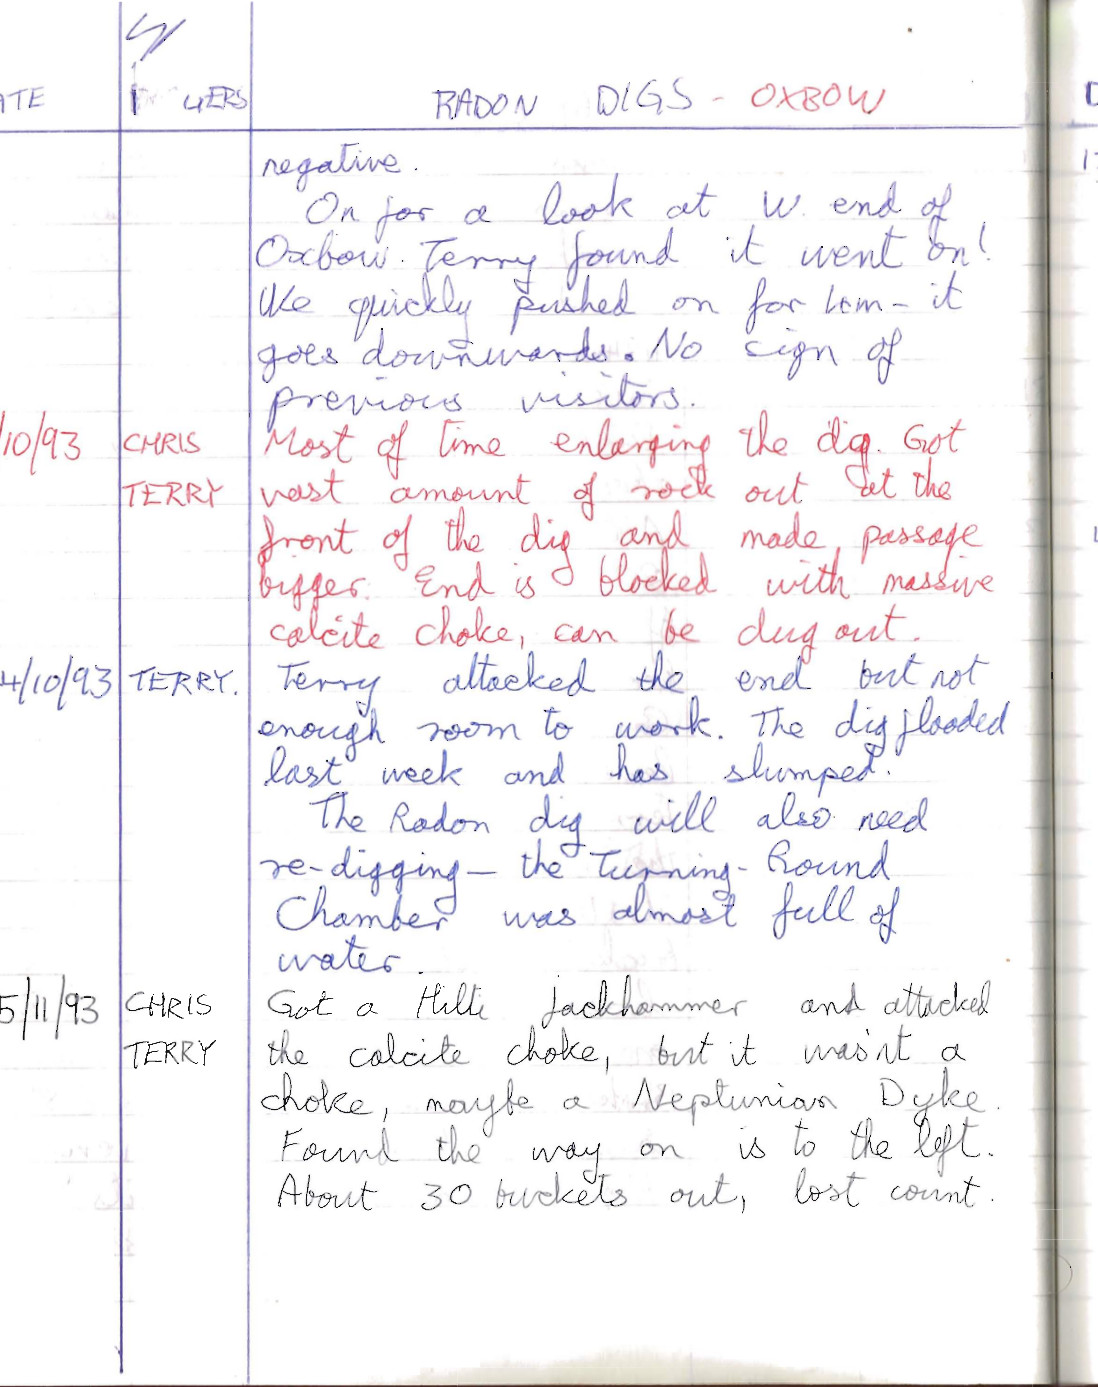 ATE
RADON DIGS - OXBOW
negative.
On for a look at W. end of
Oxbow. Terry found it went on!
We quickly pushed on for 4m - it
goes downwards. No sign of
previous visitors.
/10/93 CHRIS Most of time enlarging the dig. Got
TERRY vast amount of rock out at the
front of the dig and made passage
bigger. End is blocked with massive
calcite choke, can be dug out.
4/10/93 TERRY. Terry attacked the end but not
enough room to work. The dig flooded
last week and has slumped.
The Radon dig will also need
re-digging — the Turning-Round
Chamber was almost full of
water.
5/11/93 CHRIS Got a Hilti Jackhammer and attacked
TERRY the calcite choke, but it wasn't a
choke, maybe a Neptunian Dyke.
Found the way on is to the left.
About 30 buckets out, lost count.